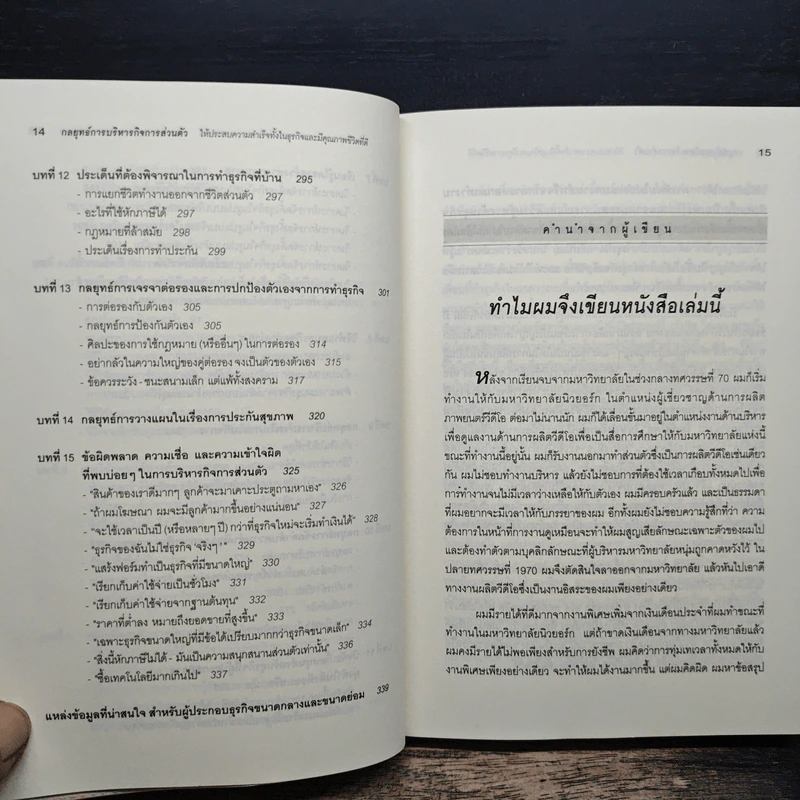 14 กลยุทธ์การบริหารกิจการส่วนตัว ให้ประสบความสำเร็จทั้งในธุรกิจและมีคุณภาพชีวิตที่ดี
บทที่ 12 ประเด็นที่ต้องพิจารณาในการทำธุรกิจที่บ้าน 295
- การแยกชีวิตทำงานออกจากชีวิตส่วนตัว 297
- อะไรที่ใช้หักภาษีได้ 297
- กฎหมายที่ล้าสมัย 298
- ประเด็นเรื่องการทำประกัน 299
บทที่ 13 กลยุทธ์การเจรจาต่อรองและการปกป้องตัวเองจากการทำธุรกิจ 301
- การต่อรองกับตัวเอง 305
- กลยุทธ์การป้องกันตัวเอง 305
- ศิลปะของการใช้กฎหมาย (หรืออื่นๆ) ในการต่อรอง 314
- อย่ากลัวในความใหญ่ของคู่ต่อรอง จงเป็นตัวของตัวเอง 315
- ข้อควรระวัง - ชนะสนามเล็ก แต่แพ้ทั้งสงคราม 317
บทที่ 14 กลยุทธ์การวางแผนในเรื่องการประกันสุขภาพ 320
บทที่ 15 ข้อผิดพลาด ความเชื่อ และความเข้าใจผิด
ที่พบบ่อยๆ ในการบริหารกิจการส่วนตัว 325
- "สินค้าของเราดีมากๆ ลูกค้าจะมาเคาะประตูถามหาเอง" 326
- "ถ้าผมโฆษณา ผมจะมีลูกค้ามากขึ้นอย่างแน่นอน" 327
- "จะใช้เวลาเป็นปี (หรือหลายๆ ปี) กว่าที่ธุรกิจใหม่จะเริ่มทำเงินได้" 328
- "ธุรกิจของฉันไม่ใช่ธุรกิจ 'จริงๆ'" 329
- "แสร้งฟอร์มทำเป็นธุรกิจที่มีขนาดใหญ่" 330
- "เรียกเก็บค่าใช้จ่ายเป็นชั่วโมง" 331
- "เรียกเก็บค่าใช้จ่ายจากฐานต้นทุน" 332
- "ราคาที่ต่ำลง หมายถึงยอดขายที่สูงขึ้น" 333
- "เฉพาะธุรกิจขนาดใหญ่ที่มีข้อได้เปรียบมากกว่าธุรกิจขนาดเล็ก" 334
- "สิ่งนี้หักภาษีไม่ได้ - มันเป็นความสนุกสนานส่วนตัวเท่านั้น" 336
- "ซื้อเทคโนโลยีมากเกินไป" 337
แหล่งข้อมูลที่น่าสนใจ สำหรับผู้ประกอบธุรกิจขนาดกลางและขนาดย่อม 339
15
คำนำจากผู้เขียน
ทำไมผมจึงเขียนหนังสือเล่มนี้
หลังจากเรียนจบจากมหาวิทยาลัยในช่วงกลางทศวรรษที่ 70 ผมก็เริ่ม
ทำงานให้กับมหาวิทยาลัยนิวยอร์ก ในตำแหน่งผู้เชี่ยวชาญด้านการผลิต
ภาพยนตร์วีดีโอ ต่อมาไม่นานนัก ผมก็ได้เลื่อนขั้นมาอยู่ในตำแหน่งงานด้านบริหาร
เพื่อดูแลงานด้านการผลิตวีดีโอเพื่อเป็นสื่อการศึกษาให้กับมหาวิทยาลัยแห่งนี้
ขณะที่ทำงานนี้อยู่นั้น ผมก็รับงานนอกมาทำส่วนตัวซึ่งเป็นการผลิตวีดีโอเช่นเดียว
กัน ผมไม่ชอบทำงานบริหาร แล้วยังไม่ชอบการที่ต้องใช้เวลาเกือบทั้งหมดไปเพื่อ
การทำงานจนไม่มีเวลาว่างเหลือให้กับตัวเอง ผมมีครอบครัวแล้ว และเป็นธรรมดา
ที่ผมอยากจะมีเวลาให้กับภรรยาของผม อีกทั้งผมยังไม่ชอบความรู้สึกที่ว่า ความ
ต้องการในหน้าที่การงานดูเหมือนจะทำให้ผมสูญเสียลักษณะเฉพาะตัวของผมไป
และต้องทำตัวตามบุคลิกลักษณะที่ผู้บริหารมหาวิทยาลัยหนุ่มถูกคาดหวังไว้ ใน
ปลายทศวรรษที่ 1970 ผมจึงตัดสินใจลาออกจากมหาวิทยาลัย แล้วหันไปเอาดี
ทางงานผลิตวีดีโอซึ่งเป็นงานอิสระของผมเพียงอย่างเดียว
ผมมีรายได้ที่ดีมากจากงานพิเศษเพิ่มจากเงินเดือนประจำที่ผมทำขณะที่
ทำงานในมหาวิทยาลัยนิวยอร์ก แต่ถ้าขาดเงินเดือนจากทางมหาวิทยาลัยแล้ว
ผมคงมีรายได้ไม่พอเพียงสำหรับการยังชีพ ผมคิดว่าการทุ่มเทเวลาทั้งหมดให้กับ
งานพิเศษเพียงอย่างเดียว จะทำให้ผมได้งานมากขึ้น แต่ผมคิดผิด ผมหาข้อสรุป